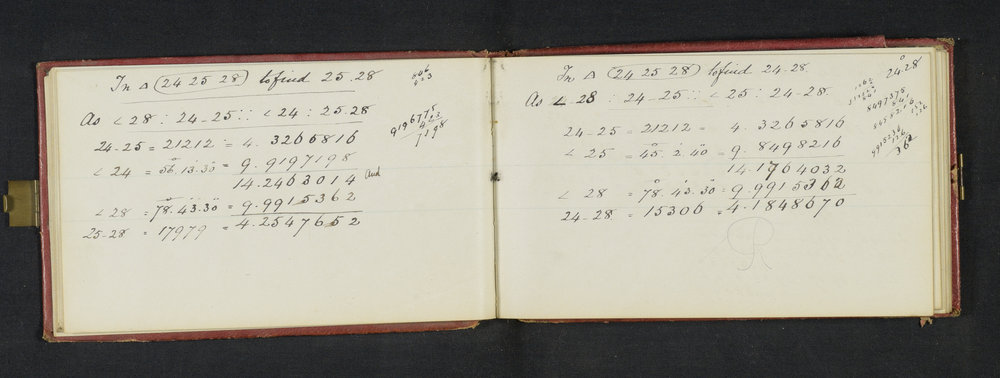 In △ (24 25 28) to find 25.28
As ∠ 28 : 24-25 :: ∠ 24 : 25.28
24-25 = 21212 = 4.3265816
∠ 24 = 56.13.30 = 9.9197198
14.2463014 And
∠ 28 = 78.43.30 = 9.9915362
25-28 = 17979 = 4.2547652
919675
423
7198
In △ (24 25 28) to find 24.28
24.28
As ∠ 28 : 24-25 :: ∠ 25 : 24-28
24-25 = 21212 = 4.3265816
∠ 25 = 45.2.40 = 9.8498216
14.1764032
∠ 28 = 78.43.30 = 9.9915362
24-28 = 15306 = 4.1848670
8497375
9915236
126
362